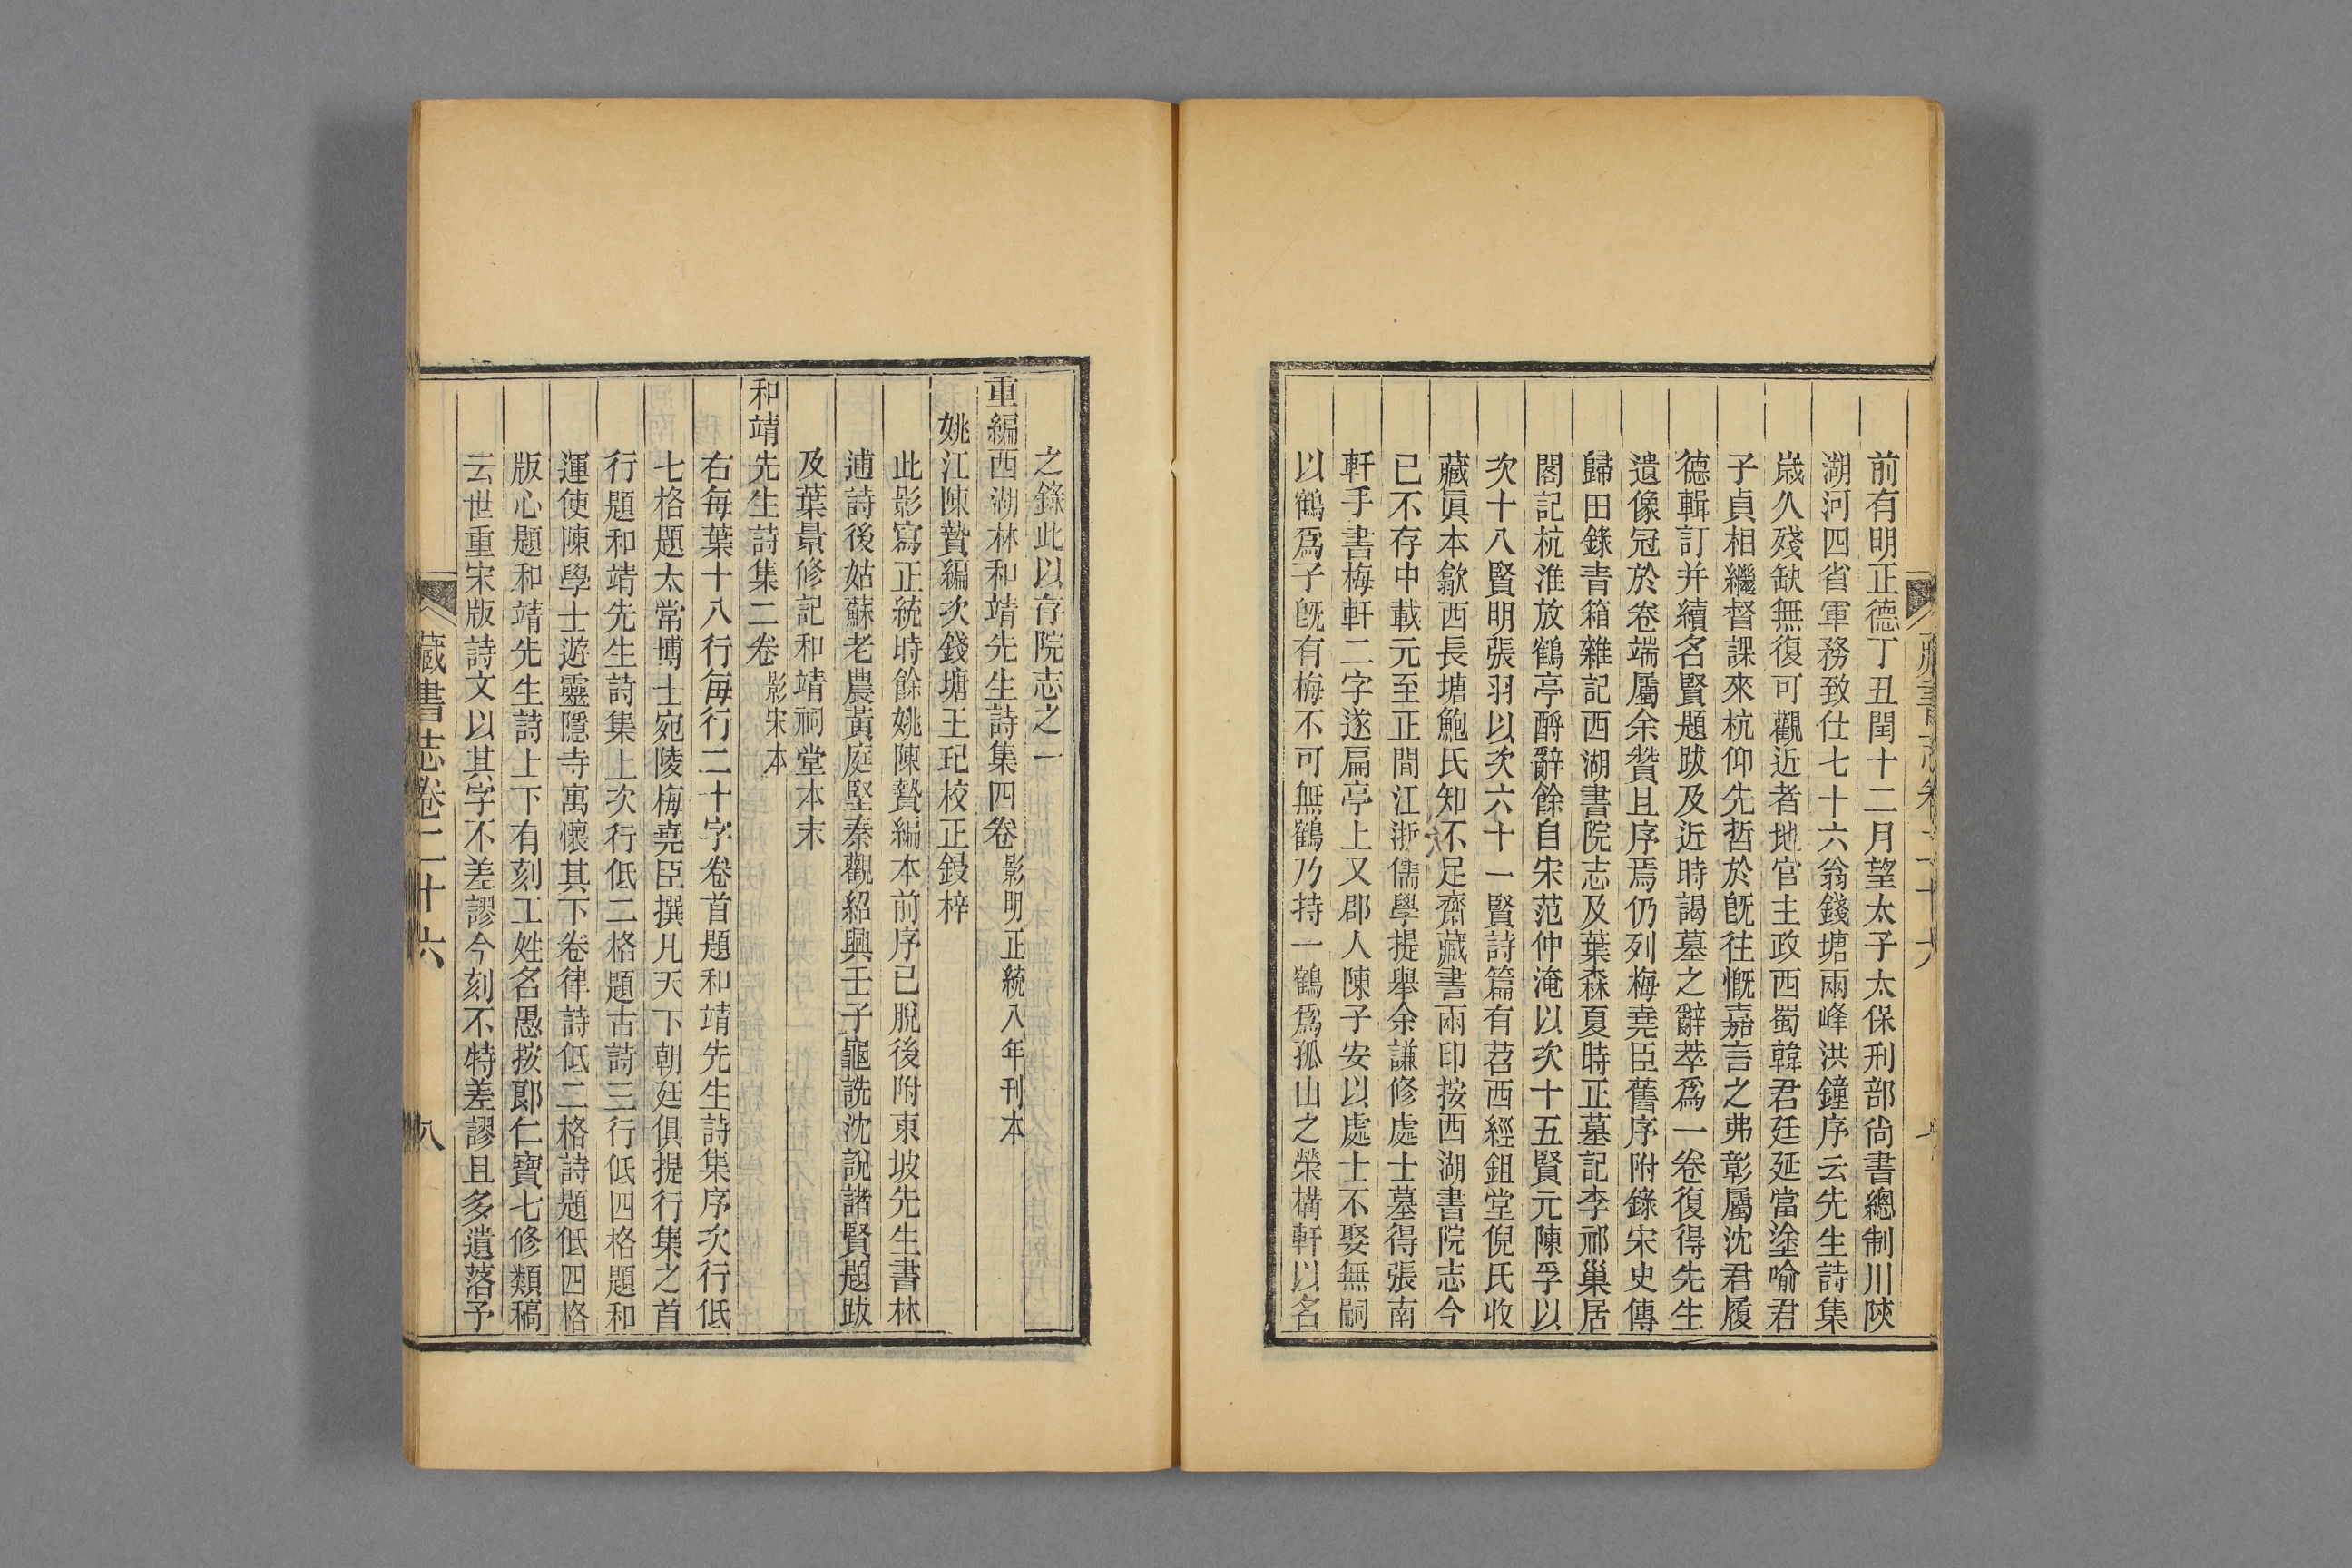 前有明正德丁丑閏十二月望太子太保刑部尙書總制川陝
湖河四省軍務致仕七十六翁錢塘兩峰洪鐘序云先生詩集
歲久殘缺無復可觀近者地官主政西蜀韓君廷延當塗喻君
子貞相繼督課來杭仰先哲於旣往慨嘉言之弗彰屬沈君履
德輯訂并續名賢題跋及近時謁墓之辭萃爲一卷復得先生
遺像冠於卷端屬余贊且序焉仍列梅堯臣舊序附錄宋史傳
歸田錄靑箱雜記西湖書院志及葉森夏時正墓記李祁巢居
閣記杭淮放鶴亭酹辭餘自宋范仲淹以次十五賢元陳孚以
次十八賢明張羽以次六十一賢詩篇有苕西經鉏堂倪氏收
藏眞本歙西長塘鮑氏知不足齋藏書兩印按西湖書院志今
已不存中載元至正間江浙儒學提舉余謙修處士墓得張南
軒手書梅軒二字遂扁亭上又郡人陳子安以處士不娶無嗣
以鶴爲子旣有梅不可無鶴乃持一鶴爲孤山之榮構軒以名
之錄此以存院志之一
重編西湖林和靖先生詩集四卷 影明正統八年刊本
姚江陳贄編次錢塘王玘校正鋟梓
此影寫正統時餘姚陳贄編本前序已脫後附東坡先生書林
逋詩後姑蘇老農黃庭堅秦觀紹興壬子龜詵沈說諸賢題跋
及葉景修記和靖祠堂本末
和靖先生詩集二卷 影宋本
右每葉十八行每行二十字卷首題和靖先生詩集序次行低
七格題太常博士宛陵梅堯臣撰凡天下朝廷俱提行集之首
行題和靖先生詩集上次行低二格題古詩三行低四格題和
運使陳學士遊靈隱寺寓懷其下卷律詩低二格詩題低四格
版心題和靖先生詩上下有刻工姓名愚按郞仁寶七修類稿
云世重宋版詩文以其字不差謬今刻不特差謬且多遺落予
藏書志卷二十六
八